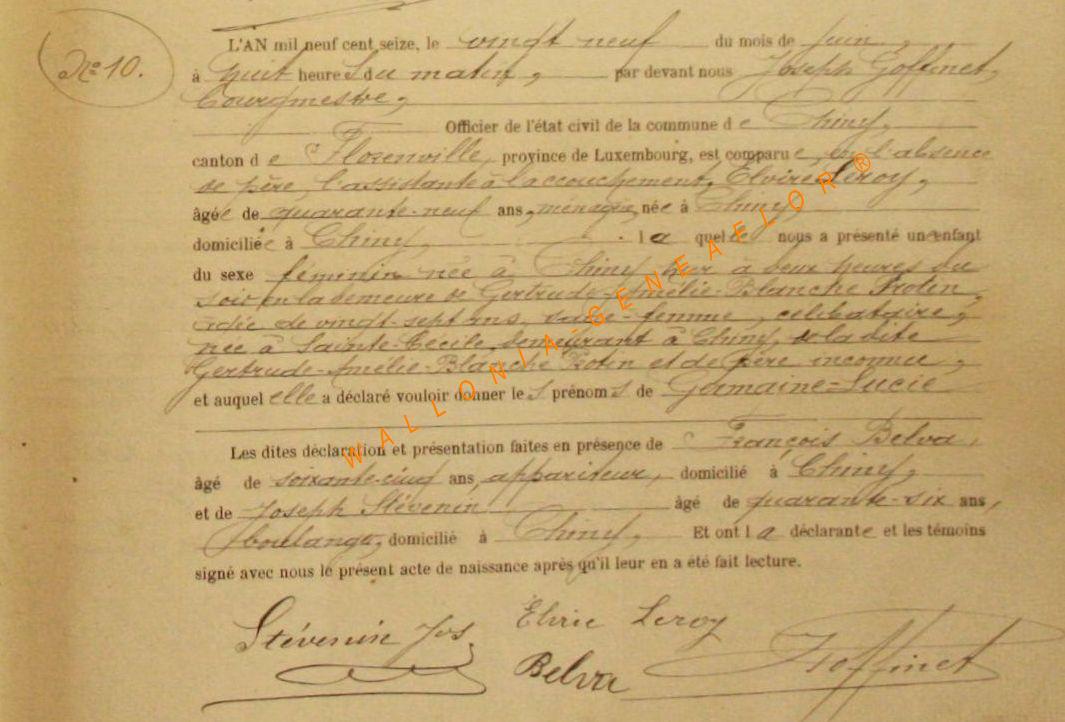 No 10.
L'AN mil neuf cent seize, le vingt neuf du mois de juin,
à huit heures du matin, par devant nous Joseph Goffinet,
bourgmestre,
Officier de l'état civil de la commune de Chiny,
canton de Florenville, province de Luxembourg, est comparue, en l'absence
de père, l'assistante à l'accouchement, Elvire Leroy,
âgée de quarante-neuf ans, ménagère, née à Chiny,
domiciliée à Chiny, laquelle nous a présenté un enfant
du sexe féminin née à Chiny hier à deux heures du
soir en la demeure de Gertrude-Amélie-Blanche Protin,
âgée de vingt-sept ans, sage-femme, célibataire,
née à Sainte-Cécile, demeurant à Chiny, de la dite
Gertrude-Amélie-Blanche Protin et de père inconnu,
et auquel elle a déclaré vouloir donner les prénoms de Germaine=Lucie
Les dites déclaration et présentation faites en présence de François Belva,
âgé de soixante-cinq ans, appariteur, domicilié à Chiny,
et de Joseph Stévenin âgé de quarante-six ans,
boulanger, domicilié à Chiny, Et ont la déclarante et les témoins
signé avec nous le présent acte de naissance après qu'il leur en a été fait lecture.
Stévenin Jos Elvire Leroy
Belva J Goffinet
WALLONIA-GENEAFLOR®